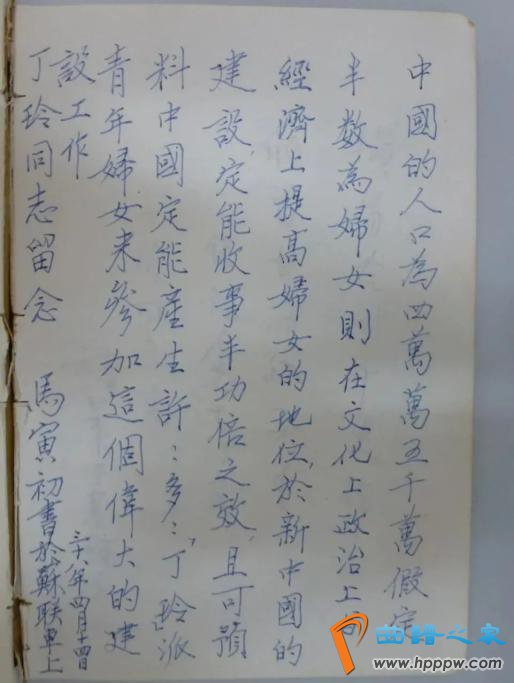 中國的人口為四萬萬五千萬假定
半數為婦女則在文化上政治上
經濟上提高婦女的地位，於新中國的
建設，定能收事半功倍之效，且可預
料中國定能產生許：多：「丁玲派」
青年婦女來參加這個偉大的建
設工作
丁玲同志留念 馬寅初書於蘇联車上
三十八年四月十四日
曲譜之家
www.hppw.com